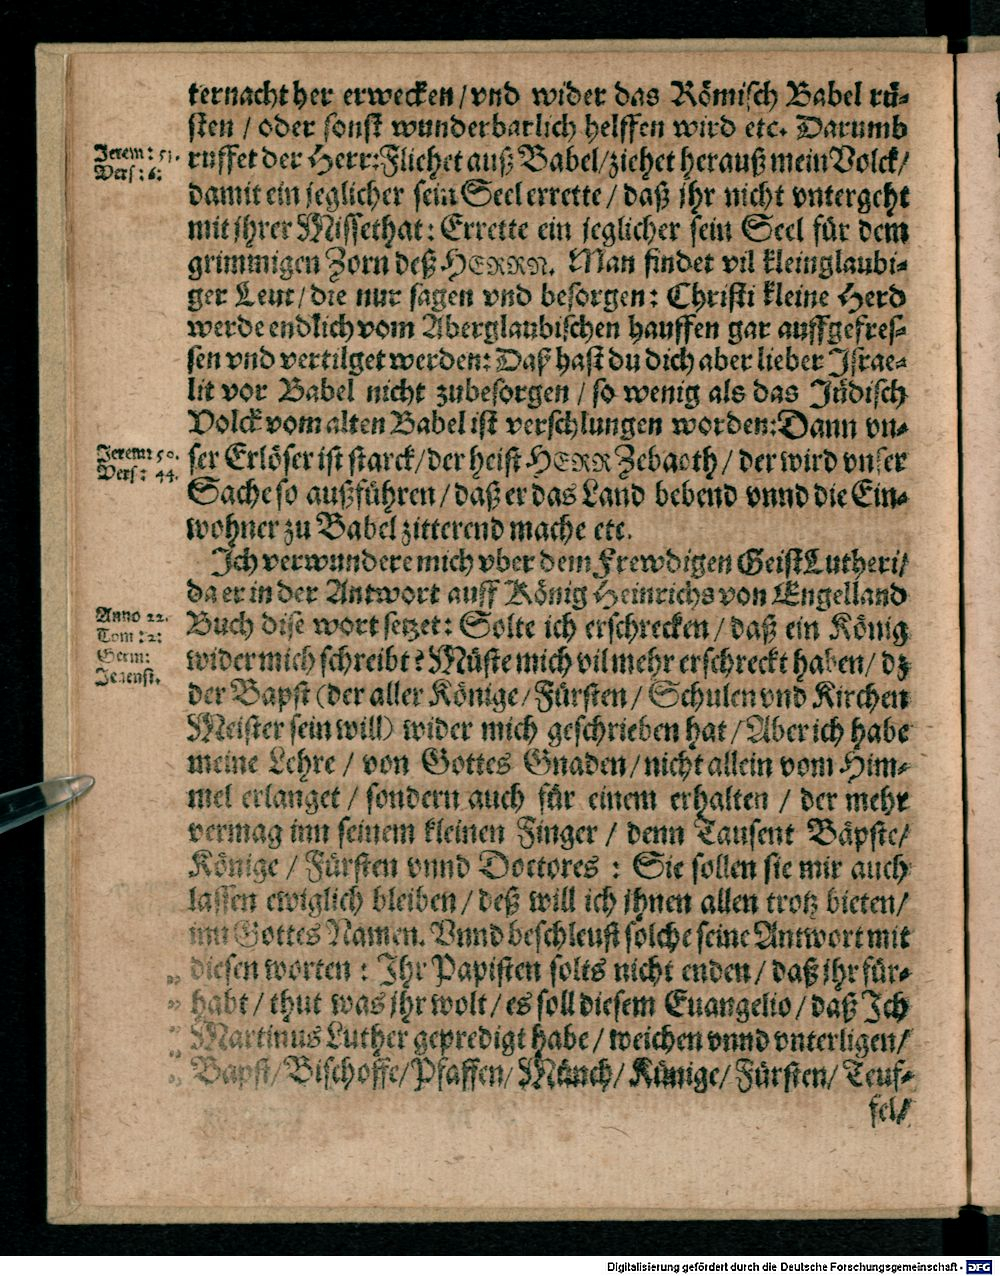 ternacht her erwecken / vnd wider das Römisch Babel rü-
sten / oder sonst wunderbarlich helffen wird etc. Darumb
Jerem: 51.
Vers: 6:
ruffet der Herr: Fliehet auß Babel / ziehet herauß mein Volck /
damit ein jeglicher sein Seel errette / daß jhr nicht vntergeht
mit jhrer Missethat: Errette ein jeglicher sein Seel für dem
grimmigen Zorn deß HERRN. Man findet vil kleinglaubi-
ger Leut / die nur sagen vnd besorgen: Christi kleine Herd
werde endlich vom Aberglaubischen hauffen gar auffgefres-
sen vnd vertilget werden: Daß hast du dich aber lieber Jsrae-
lit vor Babel nicht zubesorgen / so wenig als das Jüdisch
Volck vom alten Babel ist verschlungen worden: Dann vn-
Jerem: 50.
Vers: 44.
ser Erlöser ist starck / der heist HERR Zebaoth / der wird vnser
Sache so außführen / daß er das Land bebend vnnd die Ein-
wohner zu Babel zitterend mache etc.
Jch verwundere mich vber dem Frewdigen Geist Lutheri /
da er in der Antwort auff König Heinrichs von Engelland
Anno 22.
Tom: 2:
Germ:
Jenens.
Buch dise wort setzet: Solte ich erschrecken / daß ein König
wider mich schreibt? Müste mich vil mehr erschreckt haben / dz
der Bapst (der aller Könige / Fürsten / Schulen vnd Kirchen
Meister sein will) wider mich geschrieben hat / Aber ich habe
meine Lehre / von Gottes Gnaden / nicht allein vom Him-
mel erlanget / sondern auch für einem erhalten / der mehr
vermag inn seinem kleinen Finger / denn Tausent Bäpste /
Könige / Fürsten vnnd Doctores : Sie sollen sie mir auch
lassen ewiglich bleiben / deß will ich jhnen allen trotz bieten /
inn Gottes Namen. Vnnd beschleust solche seine Antwort mit
„ diesen worten : Jhr Papisten solts nicht enden / daß jhr für-
„ habt / thut was jhr wolt / es soll diesem Euangelio / daß Jch
„ Martinus Luther gepredigt habe / weichen vnnd vnterligen /
„ Bapst / Bischoffe / Pfaffen / Münch / Künige / Fürsten / Teuf-
fel /
Digitalisierung gefördert durch die Deutsche Forschungsgemeinschaft - DFG